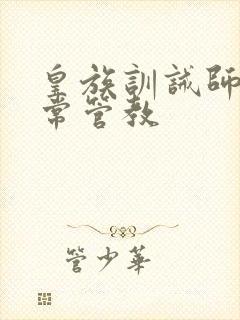 皇族訓誡師
常管教
管少華